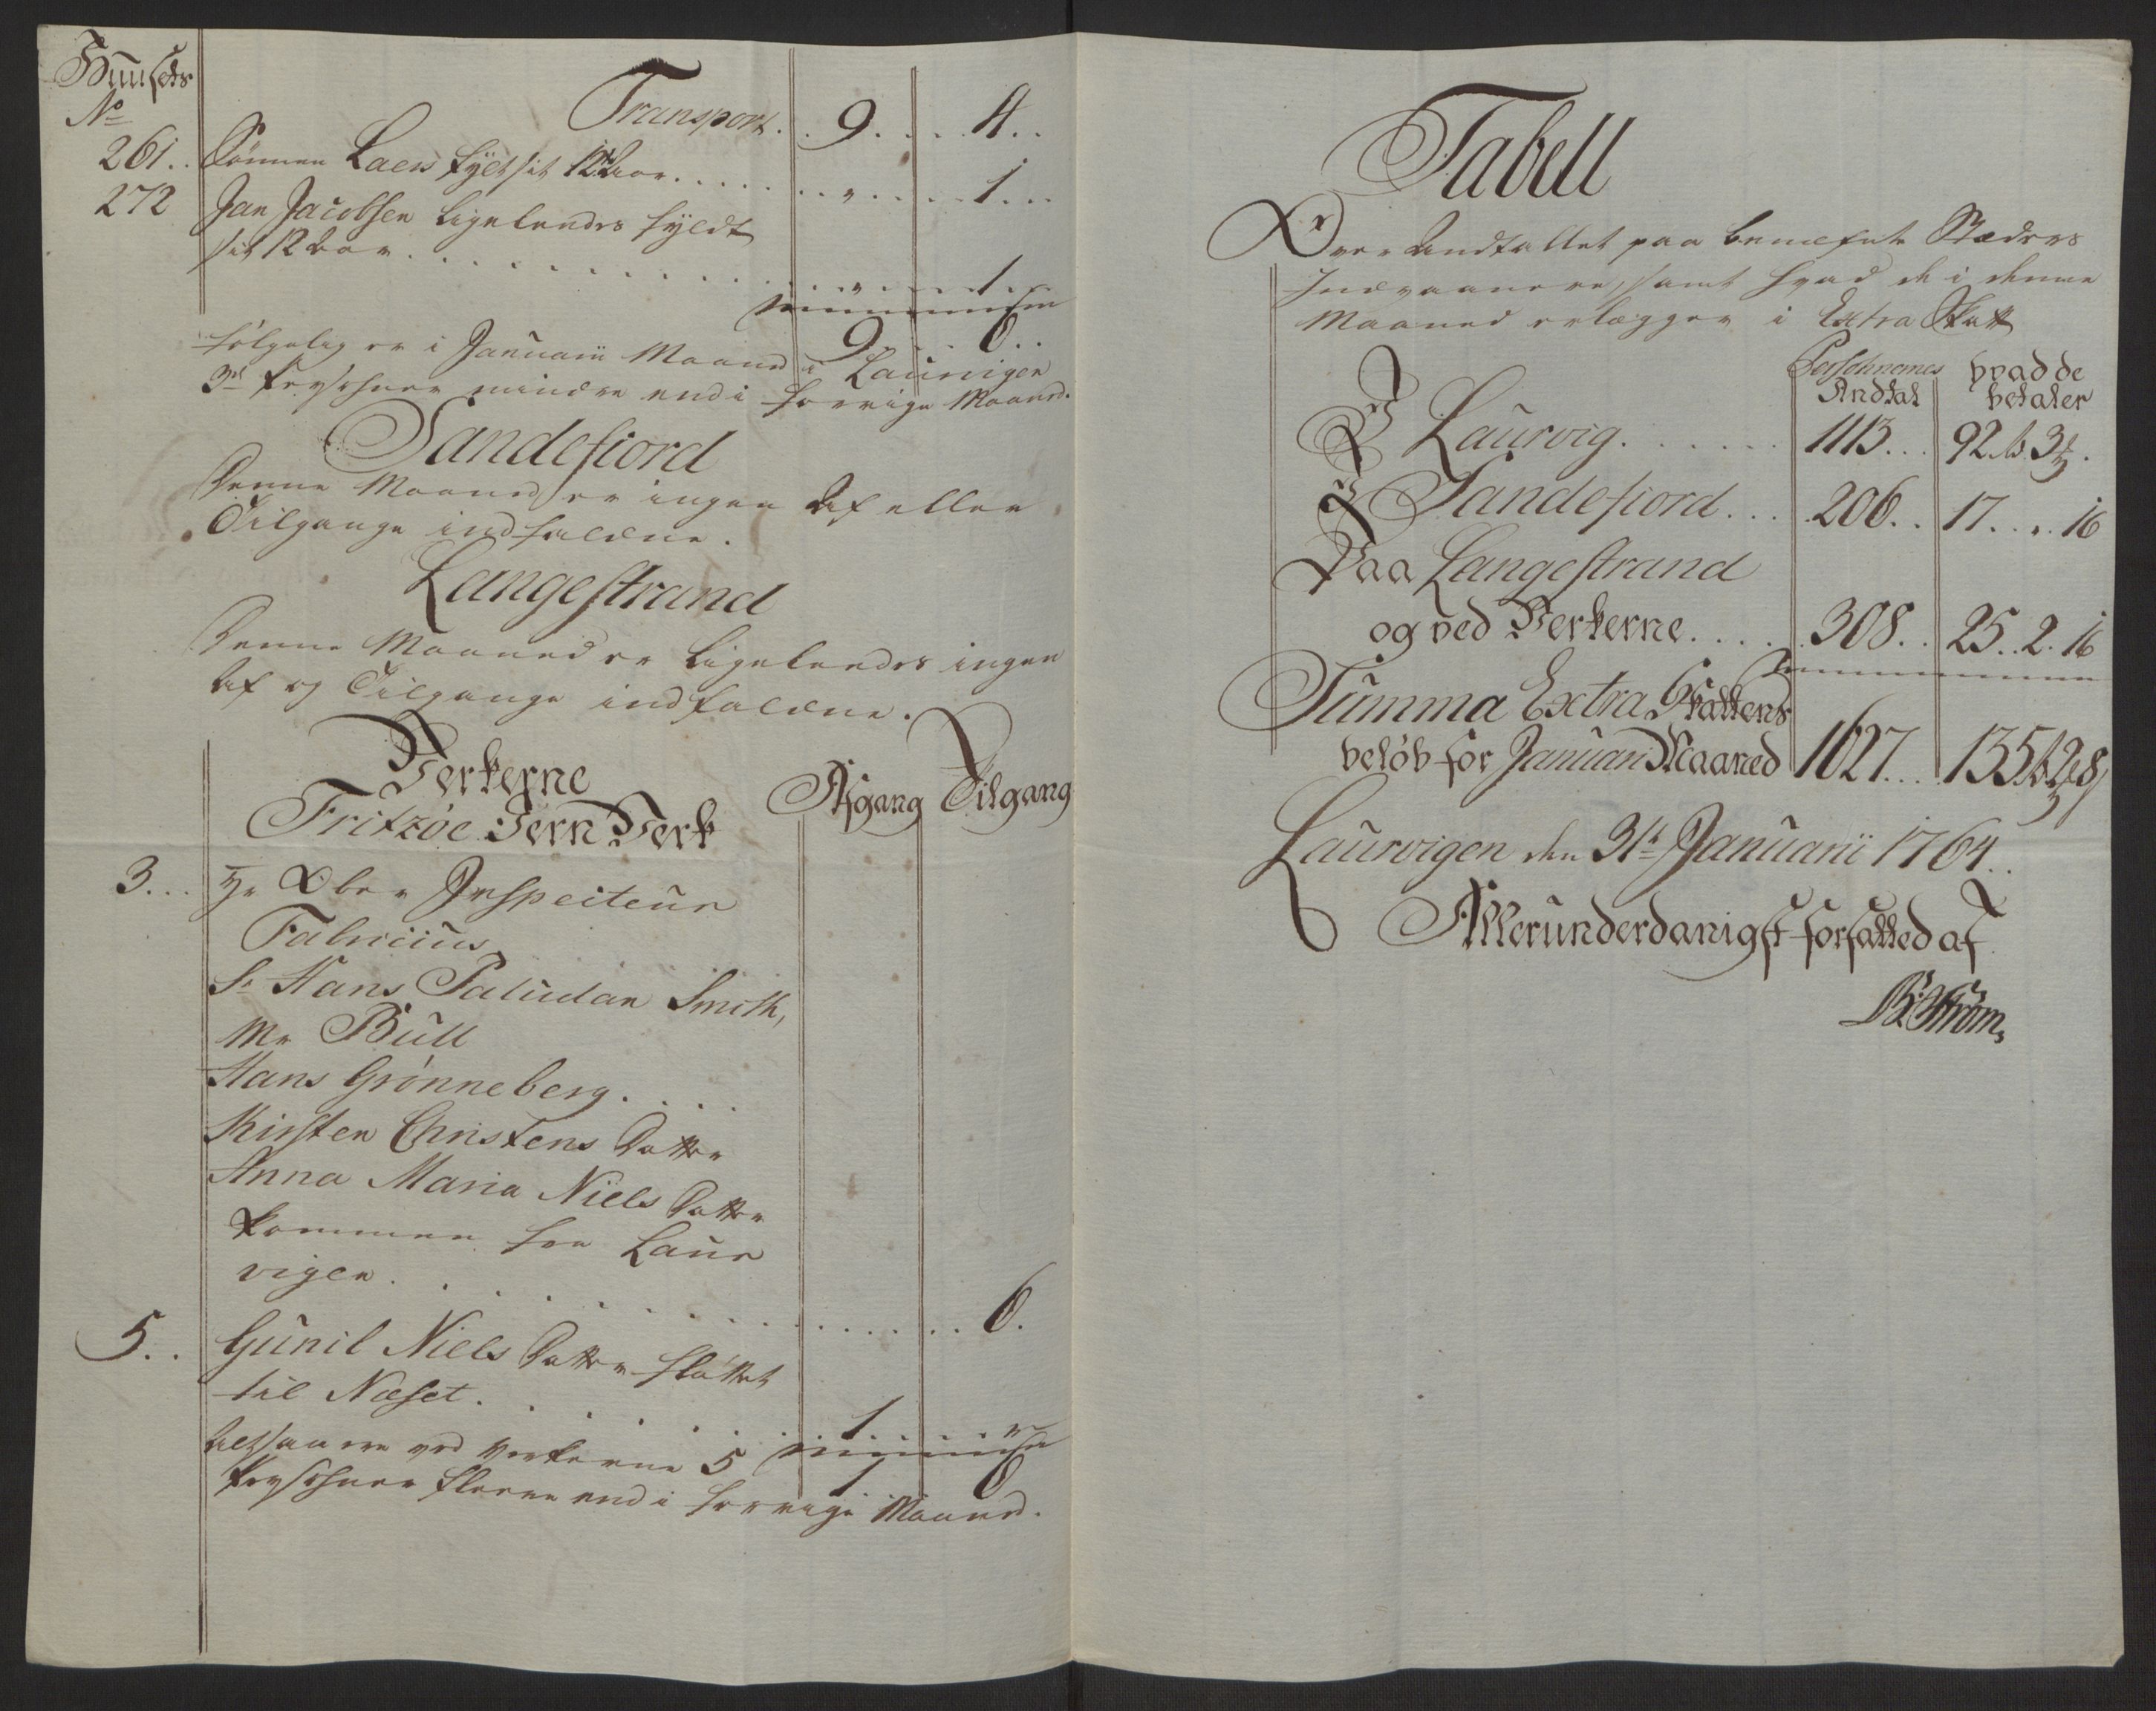 Huusets
No
Transport . . 9 . . . . 4 . .
261 . . Sønnen Laers fyldt sit 12te Aar . . . . . . . . „ . . . . 1 . . .
272 Jan Jacobsen ligeleedes fyldt
sit 12 Aar . . . . . . . . . . . . „ . . . . 1 . .
9 . . . . 6 . .
følgelig er i Januarii Maaned i Laurvigen
3de Persohner mindre end i forrige Maaned.
Sandefiord
Denne Maaned er ingen Af eller
Tilgange indfaldene.
Langestrand
Denne Maaned er ligeleedes ingen
Af og Tilgange indfaldene.
Verkerne
Fritzøe Jern Verk Afgang Tilgang
3 . . . Hr Ober Inspecteur
Fabricius
Sr Hans Paludan Smith,
Mr Bull
Hans Grønneberg . . . .
Kirsten Christens Datter
Anna Maria Niels Datter
kommen fra Laur
vigen . . . . . . . . . . . . 6.
5 . . Gunil Niels Datter fløttet
til Næset . . . . . . . 1 . . . . „
Altsaa ere ved Verkerne 5 1 6
Persohner fleere end i forrige Maaned.
Tabell
Over Andtallet paa benæfnte Stæders
Indvaanere, samt hvad de i denne
Maaned erlægger i Extra Skatt
Persohnernes hvad de
Andtal betaler
I Laurvig . . . . . . 1113 . . . 92 rd 3 ß .
I Sandefiord . . . 206 . . 17 . . „ . 16
Paa Langestrand
og ved Verkerne . . . . . 308 . . 25 . . 2 . 16
Summa Extra Skattens
beløb for Januarii Maaned 1627 . . . 135 rd 2 ß 8
Laurvigen den 31te Januarii 1764 . .
Allerunderdanigst forfatted af
B: Strøm